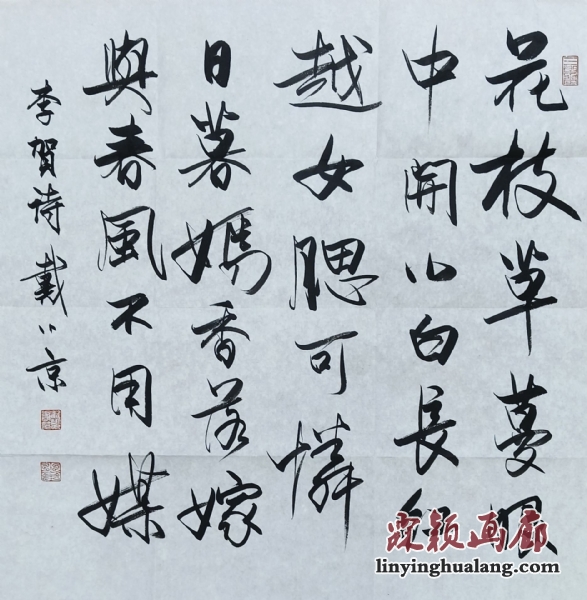 花枝草蔓眼
中開小白長紅
越女腮可憐
日暮嫣香落嫁
與春風不用媒
李賀诗戴小京
霖颖画廊
linyinghualang.com